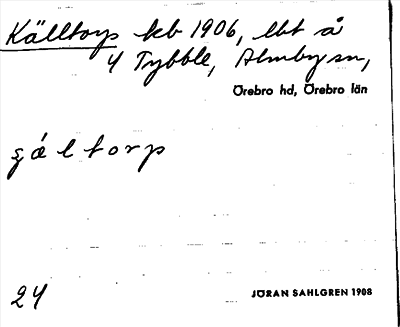 Källtorp kb 1906, lbt å
4 Tybble, Almby sn,
Örebro hd, Örebro län
ɕǽltorp
24
JÖRAN SAHLGREN 1908